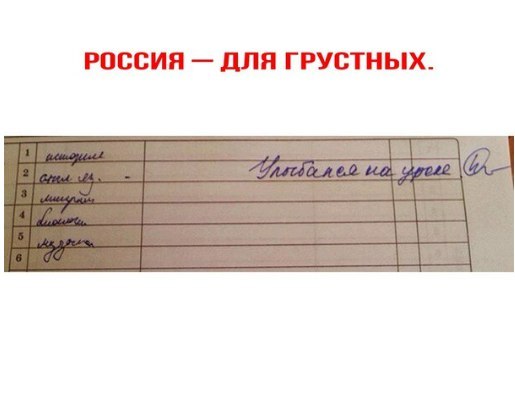 РОССИЯ — ДЛЯ ГРУСТНЫХ.
1 история
2 англ яз. - Улыбался на уроке
3
4
5 музыка
6